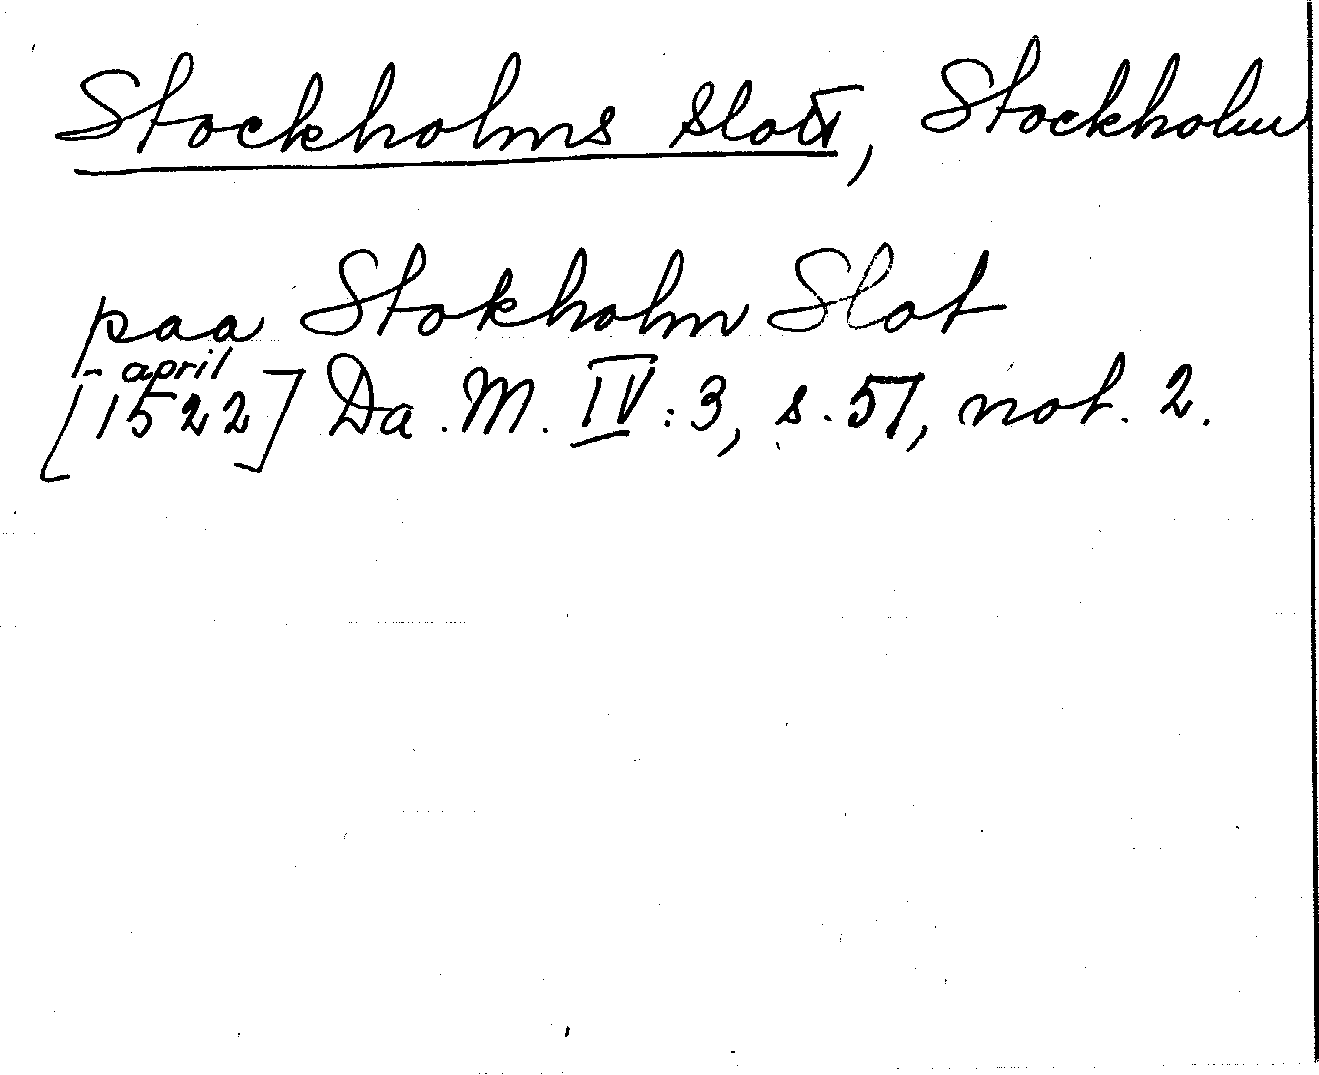 Stockholms slott, Stockholm
paa Stokholm Slot
- april
[1522] Da. M. IV: 3, s. 57, not. 2.